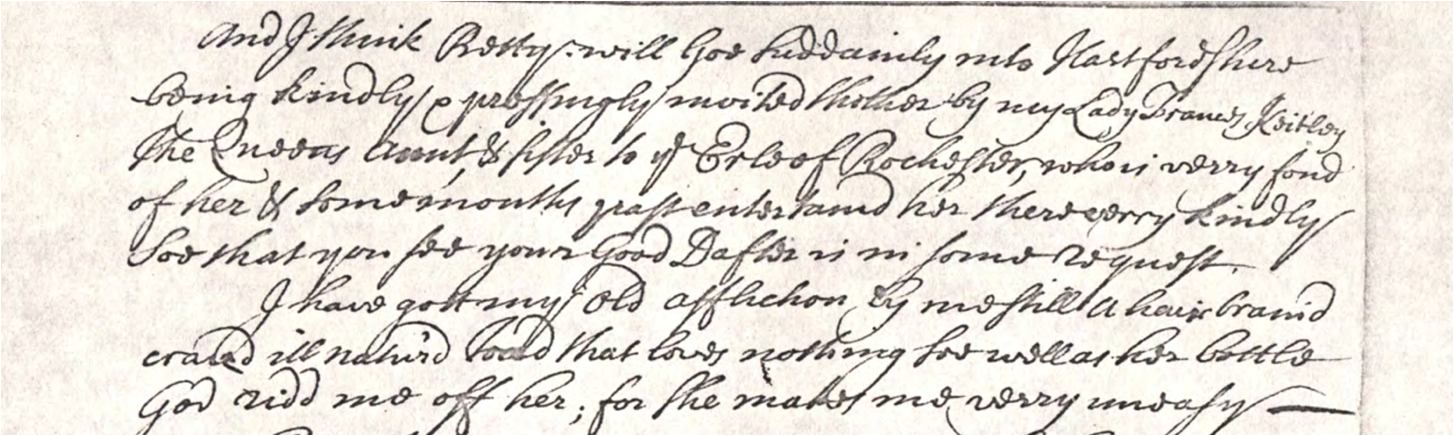 And I think Betty: will Goe suddainly into Hartfordshire
being kindly & pressingly invited thether by my Lady Frances Keitley
The Queens Aunt, & sister to ye Erle of Rochester, who is verry fond
of her & some months past entertaind her there verry kindly
Soe that you see your Good Dafter is in some request.
I have gott my old affliction by me still A hair braind
crazed ill natur'd Toad that loves nothing soe well as her bottle
God ridd me off her; for she makes me verry uneasy —